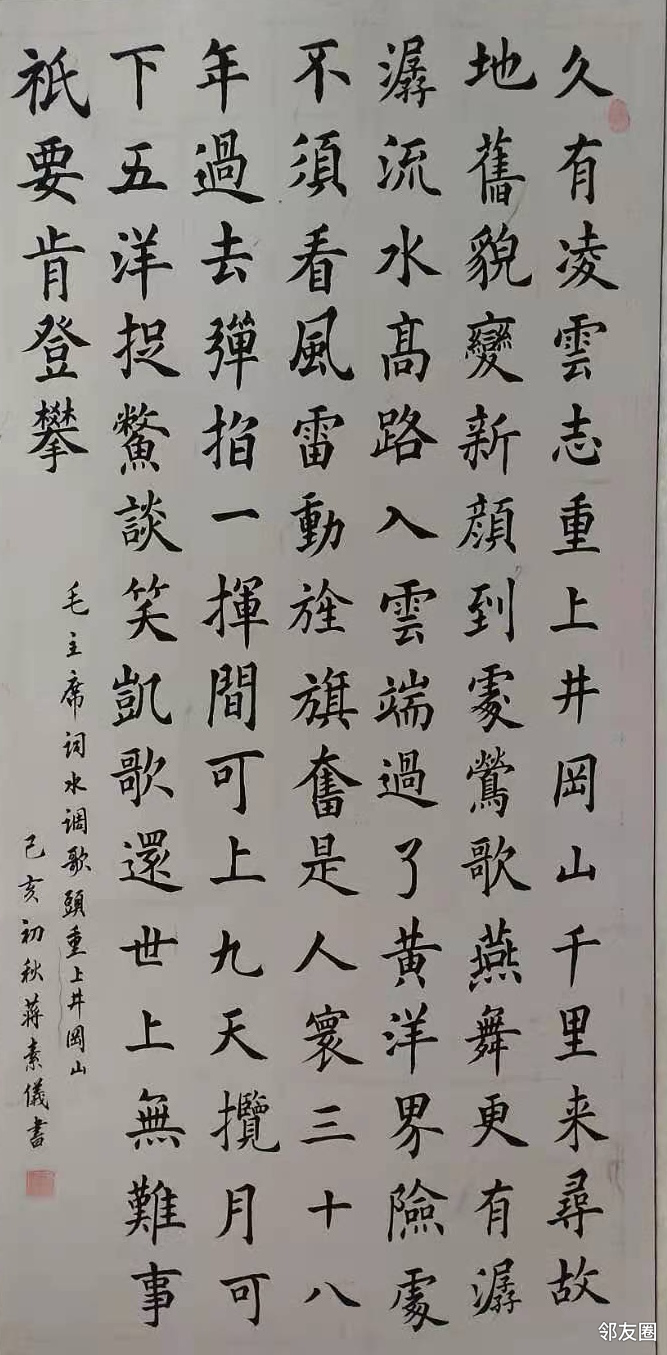 久有凌雲志重上井岡山千里来尋故
地舊貌變新顔到處鶯歌燕舞更有潺
潺流水髙路入雲端過了黄洋界險處
不須看風雷動旌旗奮是人寰三十八
年過去彈指一揮間可上九天攬月可
下五洋捉鱉談笑凱歌還世上無難事
祇要肯登攀
毛主席词水调歌頭重上井岡山
己亥初秋蒋素儀書
邻友圈